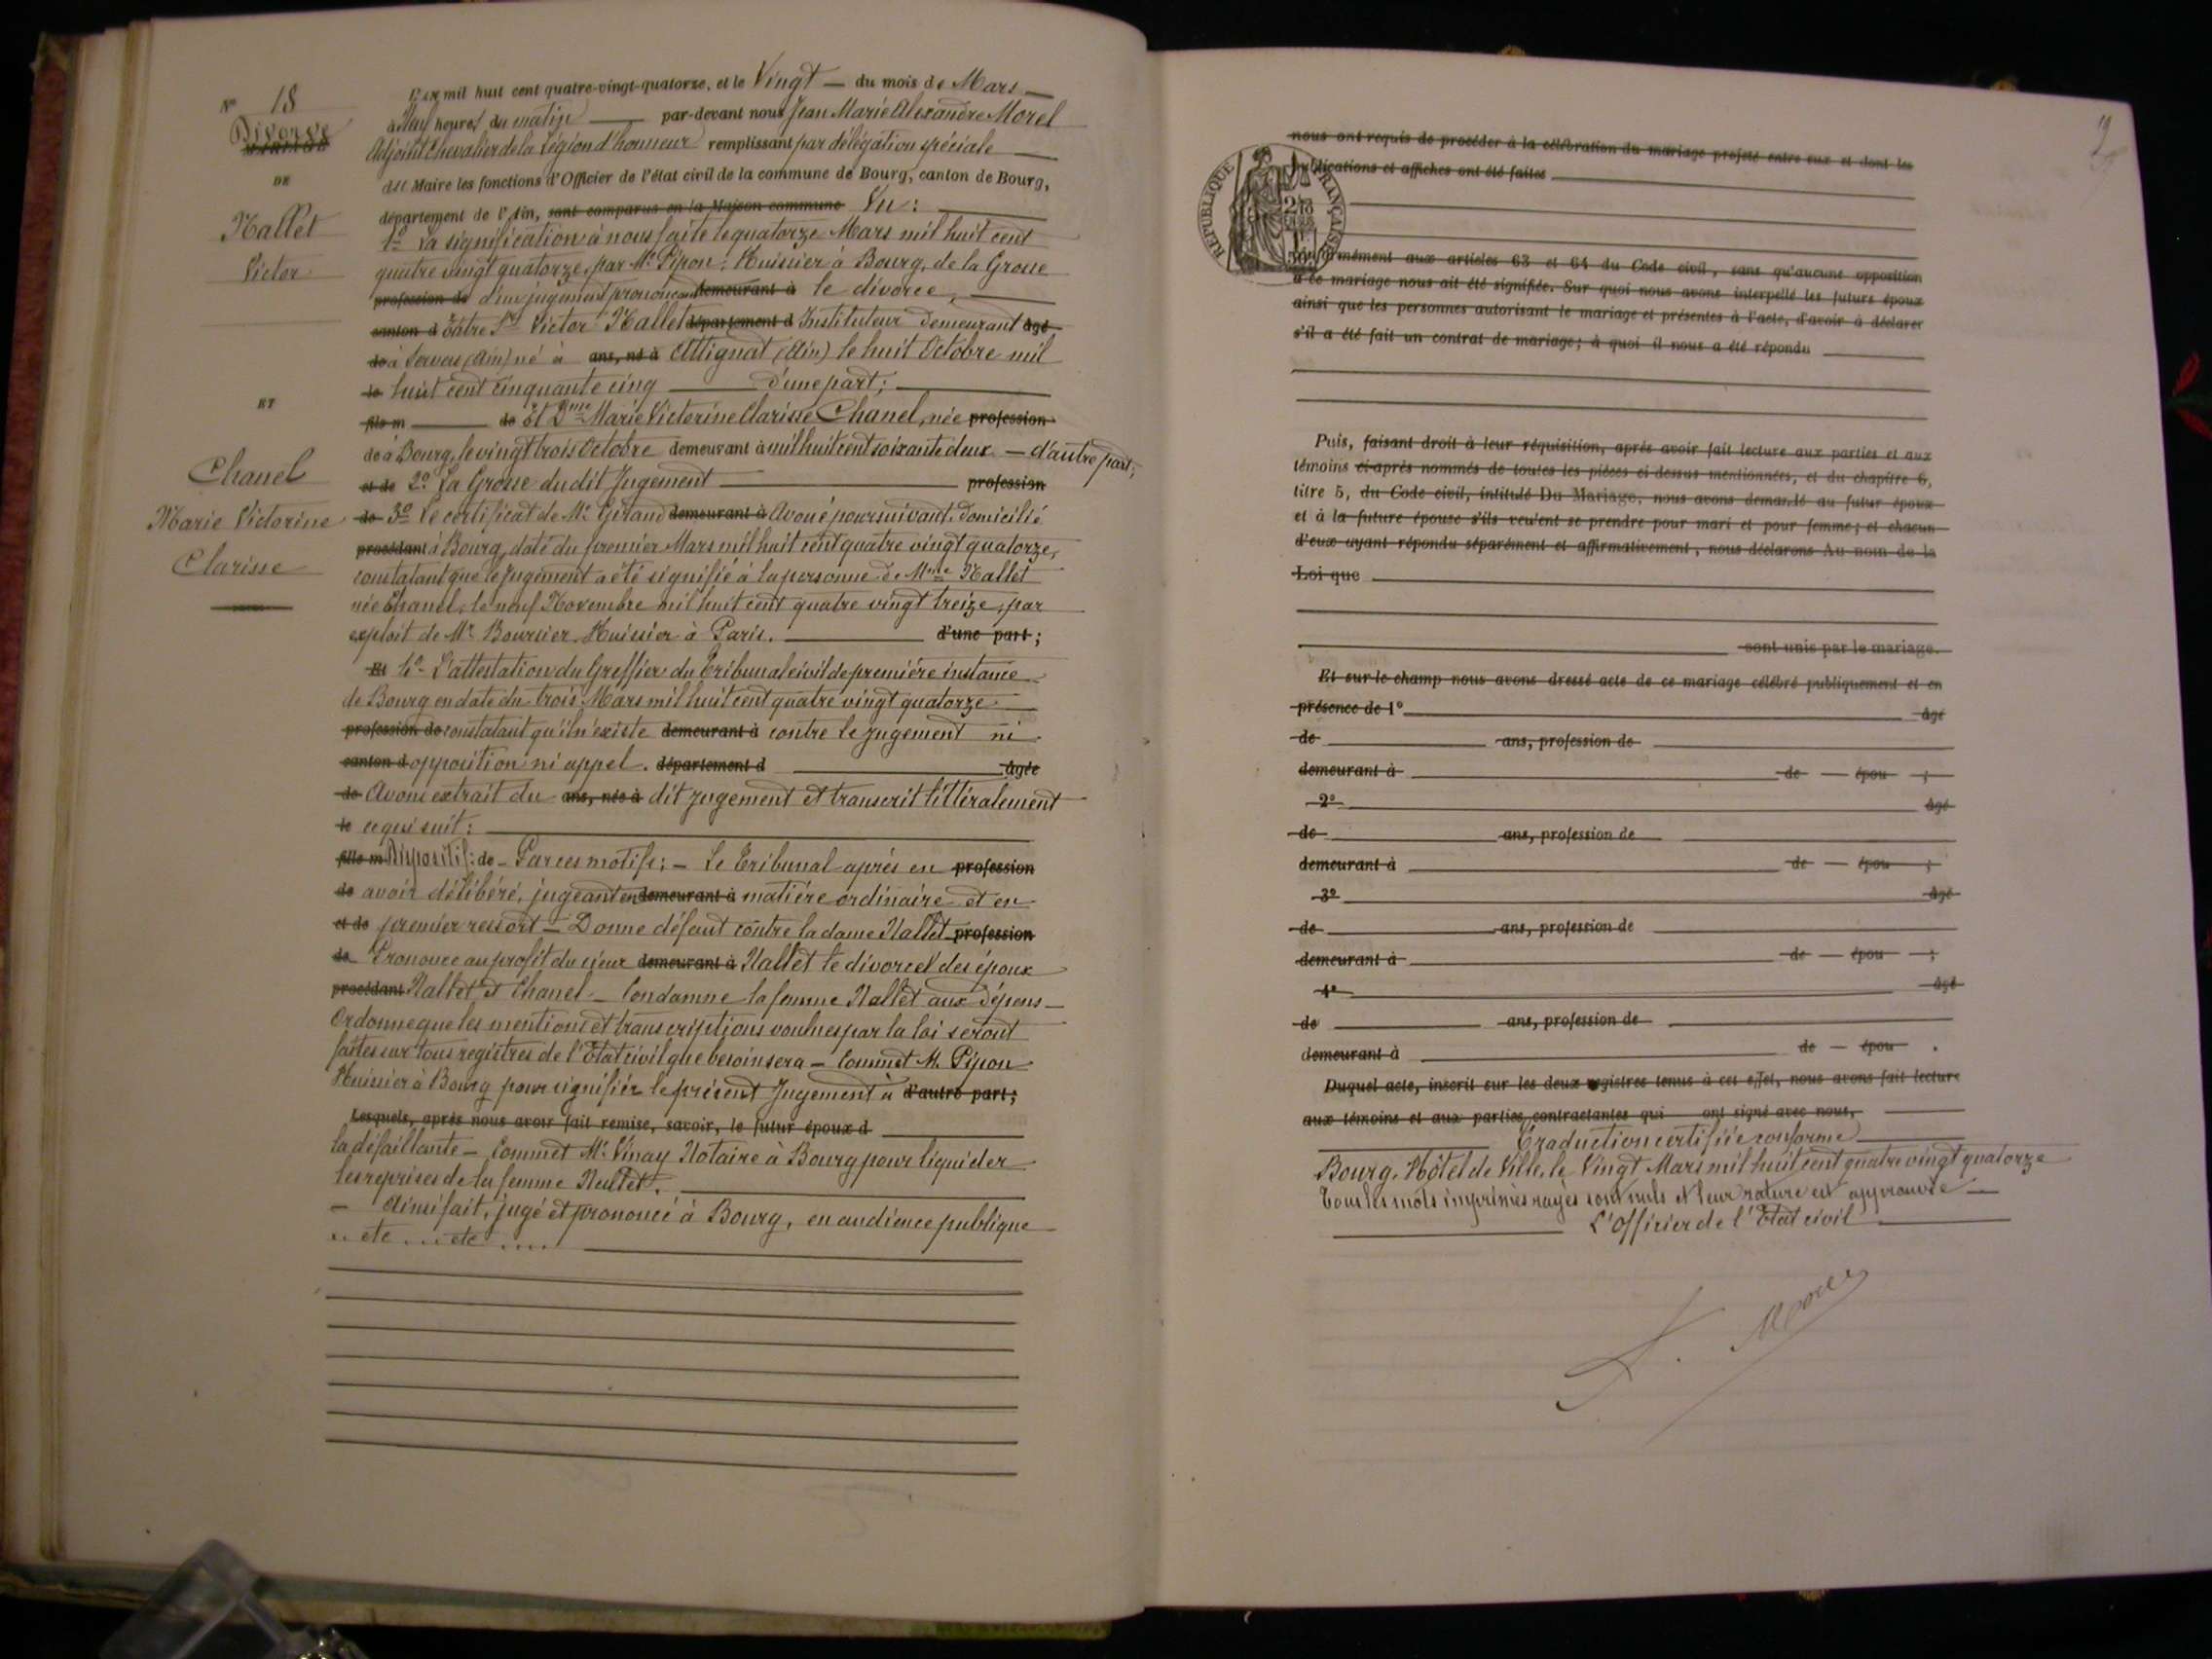 N° 18
Divorce
Mariage
DE
Nallet
Victor
ET
Chanel
Marie Victorine
Clarisse
L'an mil huit cent quatre-vingt-quatorze, et le Vingt — du mois de Mars —
à Neuf heures du matin — par-devant nous Jean Marie Alexandre Morel
Adjoint Chevalier de la Légion d'honneur remplissant par délégation spéciale —
du Maire les fonctions d'Officier de l'état civil de la commune de Bourg, canton de Bourg,
département de l'Ain, sont comparus en la Maison commune Vu : —
1° La signification à nous faite le quatorze Mars mil huit cent
quatre vingt quatorze, par Me Pipon, Huissier à Bourg, de la Grosse
profession de d'un jugement prononçant demeurant à le divorce, —
canton d entre Sr Victor Nallet département d Instituteur demeurant âgé
de à Servas (Ain) né à ans, né à Attignat (Ain) le huit Octobre mil
le huit cent cinquante cinq — d'une part; —
fils m — de Et Dme Marie Victorine Clarisse Chanel, née profession
de à Bourg, le vingt trois Octobre demeurant à mil huit cent soixante deux — d'autre part;
et de 2° La Grosse dudit Jugement — profession
de 3° Le certificat de Me Girand demeurant à Avoué poursuivant, domicilié
procédant à Bourg, daté du premier Mars mil huit cent quatre vingt quatorze,
constatant que le jugement a été signifié à la personne de Mme Nallet
née Chanel, le neuf Novembre mil huit cent quatre vingt treize, par
exploit de Mr Boursier, Huissier à Paris. — d'une part;
Et 4° L'attestation du Greffier du Tribunal civil de première instance
de Bourg en date du trois Mars mil huit cent quatre vingt quatorze —
profession de constatant qu'il n'existe demeurant à contre le jugement ni
canton d opposition ni appel. département d — âgée
de Avons extrait du ans, née à dit jugement et transcrit littéralement
le ce qui suit : —
fille m Dispositif : de — Par ces motifs ; — Le Tribunal après en profession
de avoir délibéré, jugeant en demeurant à matière ordinaire et en
et de premier ressort — Donne défaut contre la dame Nallet profession
de Prononce au profit du sieur demeurant à Nallet le divorce des époux
procédant Nallet et Chanel — Condamne la femme Nallet aux dépens —
Ordonne que les mentions et transcriptions voulues par la loi seront
faites sur tous registres de l'Etat civil que besoin sera — Commet M. Pipon
Huissier à Bourg pour signifier le présent Jugement à d'autre part;
Lesquels, après nous avoir fait remise, savoir, le futur époux d —
la défaillante — Commet Me Vinay Notaire à Bourg pour liquider
les reprises de la femme Nallet. —
— Ainsi fait, jugé et prononcé à Bourg, en audience publique
.. etc ... etc .... —
nous ont requis de procéder à la célébration du mariage projeté entre eux et dont les
publications et affiches ont été faites —
RÉPUBLIQUE FRANÇAISE
Conformément aux articles 63 et 64 du Code civil, sans qu'aucune opposition
à ce mariage nous ait été signifiée. Sur quoi nous avons interpellé les futurs époux
ainsi que les personnes autorisant le mariage et présentes à l'acte, d'avoir à déclarer
s'il a été fait un contrat de mariage; à quoi il nous a été répondu —
Puis, faisant droit à leur réquisition, après avoir fait lecture aux parties et aux
témoins ci-après nommés de toutes les pièces ci-dessus mentionnées, et du chapitre 6,
titre 5, du Code civil, intitulé Du Mariage, nous avons demandé au futur époux
et à la future épouse s'ils veulent se prendre pour mari et pour femme; et chacun
d'eux ayant répondu séparément et affirmativement, nous déclarons Au nom de la
Loi que —
— sont unis par le mariage.
Et sur-le-champ nous avons dressé acte de ce mariage célébré publiquement et en
présence de 1° — âgé
de — ans, profession de —
demeurant à — de — épou — ;
2° — âgé
de — ans, profession de —
demeurant à — de — épou — ;
3° — âgé
de — ans, profession de —
demeurant à — de — épou — ;
4° — âgé
de — ans, profession de —
demeurant à — de — épou .
Duquel acte, inscrit sur les deux registres tenus à cet effet, nous avons fait lecture
aux témoins et aux parties contractantes qui ont signé avec nous, —
Traduction certifiée conforme —
Bourg, Hôtel de Ville, le Vingt Mars mil huit cent quatre vingt quatorze
Tous les mots imprimés rayés sont nuls et leur rature est approuvée —
L'Officier de l'Etat civil —
A. Morel